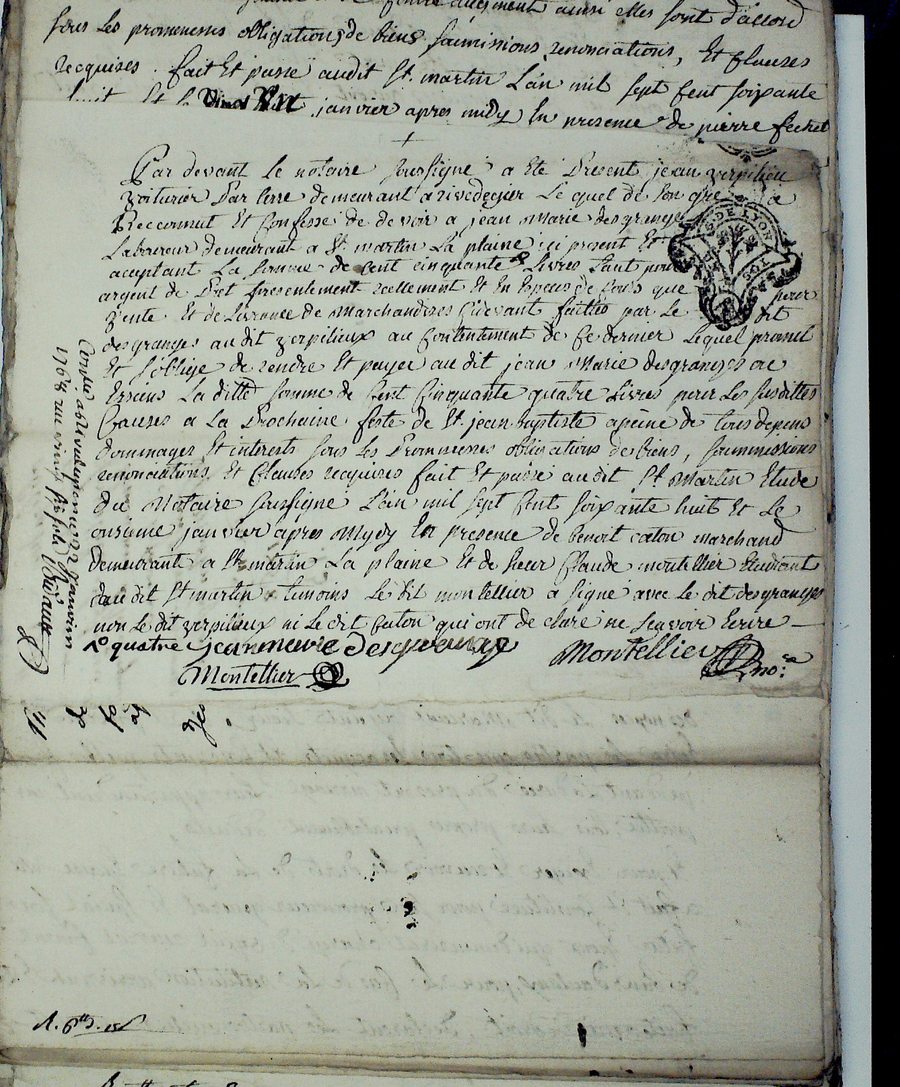 ainsi elles sont d'accord
sous les promesses obligations de biens soumissions renonciations, Et Clauses
requises. fait Et passé audit St. martin L'an mil sept Cent soixante
huit Et le vingt janvier apres midy En presence de pierre
Par devant Le notaire soussigné a été Present jean verpilieu
voiturier Par terre demeurant a rivedegier Le quel de son gré a
Recconnut Et Confessé de devoir a jean Marie desgranges
Laboureur demeurant a St martin La plaine ici present Et
aceptant La somme de Cent cinquante Livres tant pour
argent de Pret presentement reellement Et En Especes de Cours que pour
vente Et de Livrance de Marchandises Cidevant faittes par Le dit
desgranges audit verpilieux au Contentement de Ce dernier Lequel promet
Et s'oblige de rendre Et payer audit jean Marie desgranges ou
Es siens La ditte somme de Cent Cinquante quatre Livres pour Les susdittes
Causes a La Prochaine feste de St. jean Baptiste a peine de tous depens
dommages Et interets sous Les Promesses obligations de biens, soummissions
renonciations, Et Clauses requises fait Et passé audit St Martin Etude
du Notaire soussigné L'an mil sept Cent soixante huit Et Le
onzième janvier apres Mydy En presence de benoit caton marchand
demeurant a St martin La plaine Et de sieur Claude montellier Etudiant
du dit St martin temoins Le dit montellier a signé avec Le dit desgranges
non Le dit verpilieux ni Le dit Caton qui ont declaré ne sçavoir Ecrire
quatre jean marie Desgrange Montellier
Montellier no.re
22 janvier
1768
A. 6